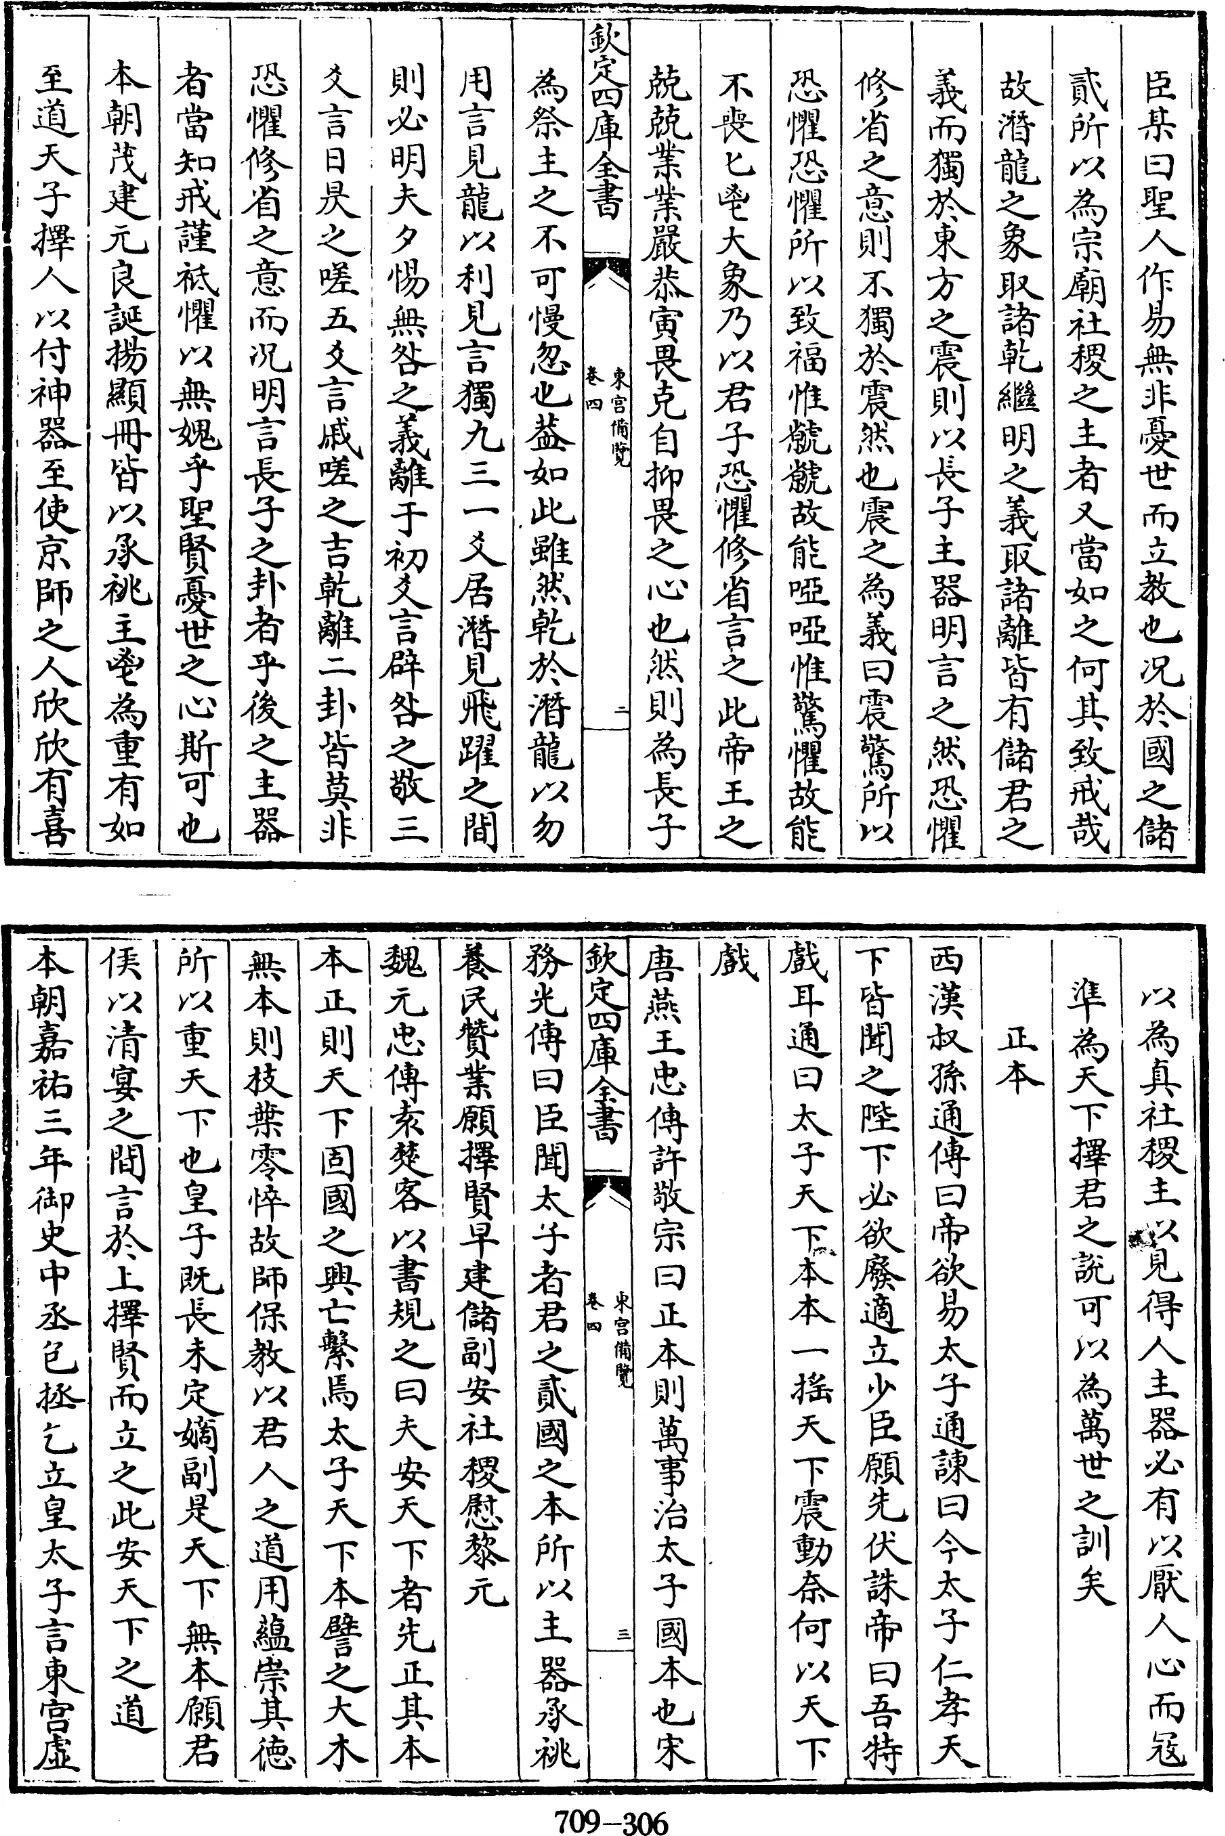 臣某曰聖人作易無非憂世而立教也况於國之儲
貳所以為宗廟社稷之主者又當如之何其致戒哉
故潛龍之象取諸乾繼明之義取諸離皆有儲君之
義而獨於東方之震則以長子主器明言之然恐懼
修省之意則不獨於震然也震之為義曰震驚所以
恐懼恐懼所以致福惟虩虩故能啞啞惟驚懼故能
不喪匕鬯大象乃以君子恐懼修省言之此帝王之
兢兢業業嚴恭寅畏克自抑畏之心也然則為長子
欽定四庫全書
東宮備覽
卷四
二
為祭主之不可慢忽也葢如此雖然乾於潛龍以勿
用言見龍以利見言獨九三一爻居潛見飛躍之間
則必明夫夕惕無咎之義離于初爻言辟咎之敬三
爻言日昃之嗟五爻言戚嗟之吉乾離二卦皆莫非
恐懼修省之意而况明言長子之卦者乎後之主器
者當知戒謹祗懼以無媿乎聖賢憂世之心斯可也
本朝茂建元良誕揚顯冊皆以承祧主鬯為重有如
至道天子擇人以付神器至使京師之人欣欣有喜
以為真社稷主以見得人主器必有以厭人心而冦
準為天下擇君之說可以為萬世之訓矣
正本
西漢叔孫通傳曰帝欲易太子通諫曰今太子仁孝天
下皆聞之陛下必欲廢適立少臣願先伏誅帝曰吾特
戲耳通曰太子天下本本一揺天下震動奈何以天下
戲
唐燕王忠傳許敬宗曰正本則萬事治太子國本也宋
欽定四庫全書
東宮備覽
卷四
三
務光傳曰臣聞太子者君之貳國之本所以主器承祧
養民贊業願擇賢早建儲副安社稷慰黎元
魏元忠傳袁楚客以書規之曰夫安天下者先正其本
本正則天下固國之興亡繫焉太子天下本譬之大木
無本則枝葉零悴故師保教以君人之道用蘊崇其德
所以重天下也皇子既長未定嫡副是天下無本願君
侯以清宴之間言於上擇賢而立之此安天下之道
本朝嘉祐三年御史中丞包拯乞立皇太子言東宮虛
709-306